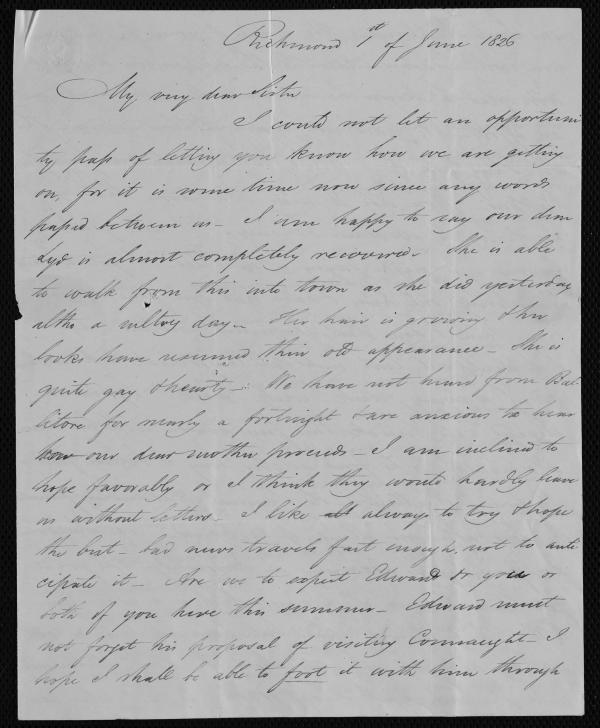 Richmond 1st of June 1826
My very dear Sister
I could not let an opportuni
ty pass of letting you know how we are getting
on, for it is some time now since any words
passed between us - I am happy to say our dear
Lyd is almost completely recovered - She is able
to walk from this into town as she did yesterday
altho a sultry day - Her hair is growing & her
looks have resumed their old appearance - She is
quite gay & hearty - We have not heard from Bal
litore for nearly a fortnight & are anxious to hear
how our dear mother proceeds - I am inclined to
hope favorably or I think they would hardly leave
us without letters - I like always to try & hope
the best - bad news travels fast enough, not to anti
cipate it - Are we to expect Edward or you or
both of you here this summer - Edward must
not forget his proposal of visiting Connaught - I
hope I shall be able to foot it with him through